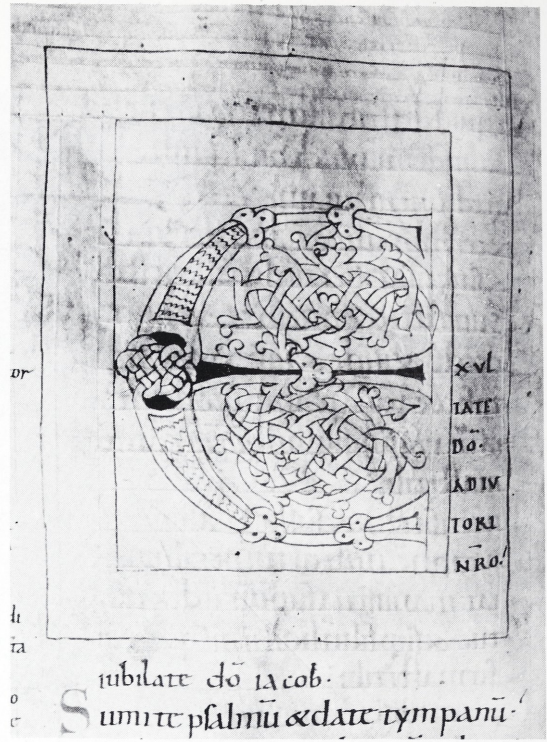 E XVL
TATE
DŌ·
ADIV
TORI
NRŌ!
iubilate dō iacob·
Sumite psalmū &date tympanū·